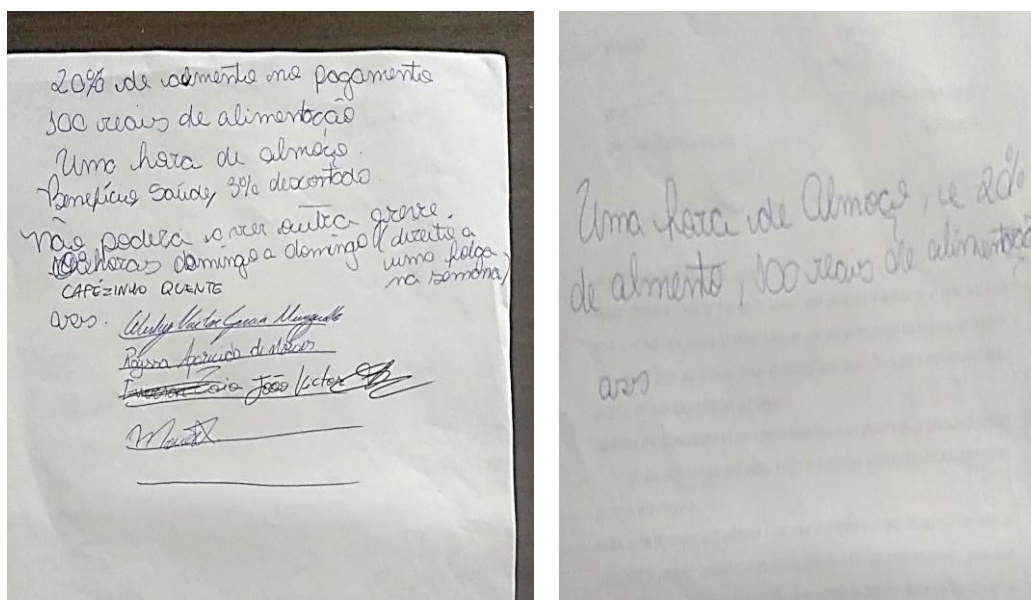 20% de aumento no pagamento
100 reais de alimentação
Uma hora de almoço.
Benefício Saúde, 3% descontado.
Não poderá aver outra greve.
horas domingo a domingo (direito a
uma folga
na semana)
CAFÉZINHO QUENTE
ass.
Victor
Rayssa Aparecida de
João Victor
Uma hora de Almoço, e 20%
de almento, 100 reais de alimentação
ass